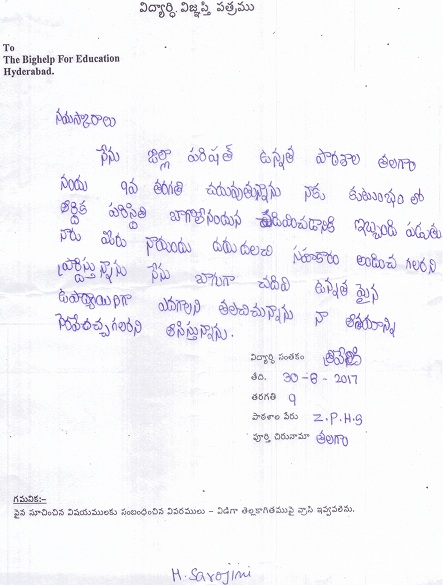 విద్యార్ధి విజ్ఞప్తి పత్రము
To
The Bighelp For Education
Hyderabad.
నమస్కారాలు
నేను జిల్లా పరిషత్ ఉన్నత పాఠశాల తలగాం
నందు 9వ తరగతి చదువుతున్నాను నాకు కుటుంబం లో
ఆర్ధిక పరిస్థితి బాగోలేనందున చదివించడానికి ఇబ్బంది పడుతు
నారు మీరు నాయందు దయదలచి సహకారం అందించ గలరని
ప్రార్ధిస్తున్నాను నేను బాగుగా చదివి ఉన్నత మైన
ఉపాధ్యాయినిగా ఎదగాలని తలచిచున్నాను నా ఆశయాన్ని
నెరవేరచ్చగలరని ఆశిస్తున్నాను.
విద్యార్ధి సంతకం
తేది. 30-8-2017
తరగతి 9
పాఠశాల పేరు Z.P.H.S
పూర్తి చిరునామా తలగాం
గమనిక:-
పైన సూచించిన విషయములకు సంబంధించిన వివరములు - విడిగా తెల్లకాగితముపై వ్రాసి ఇవ్వవలెను.
H. Sarojini